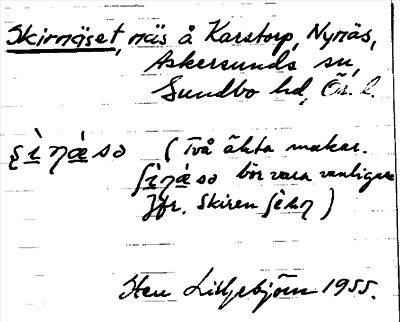 Skirnäset, näs å Karstorp, Nynäs,
Askersunds sn,
Sundbo hd, Ör. l.
ʂì̱ŋá̱sə (Två äkta makar.
ʃì̱ŋá̱sə bör vara vanligare
Jfr. Skiren ʃèŋ )
Sten Liljebjörn 1955.